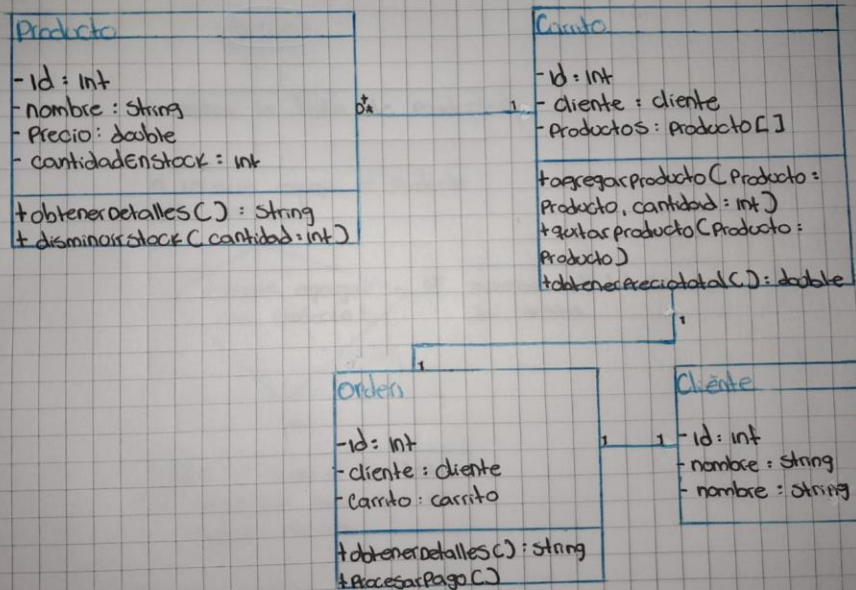 Producto
- Id : Int
- nombre : String
- Precio : double
- cantidadEnStock : Int
+ obtenerDetalles() : String
+ disminoirstock (cantidad : int)
1
Carrito
- Id : Int
- cliente : cliente
- Productos : Producto[]
+agregarproducto (Producto :
Producto, cantidad : int)
+quitarproducto (Producto :
Producto)
+obtenerPreciototal() : double
1
1
Orden
- Id : Int
- cliente : cliente
- Carrito : carrito
+obtenerDetalles() : string
+ProcesarPago()
1
1
Cliente
- Id : Int
- nombre : String
- nombre : String